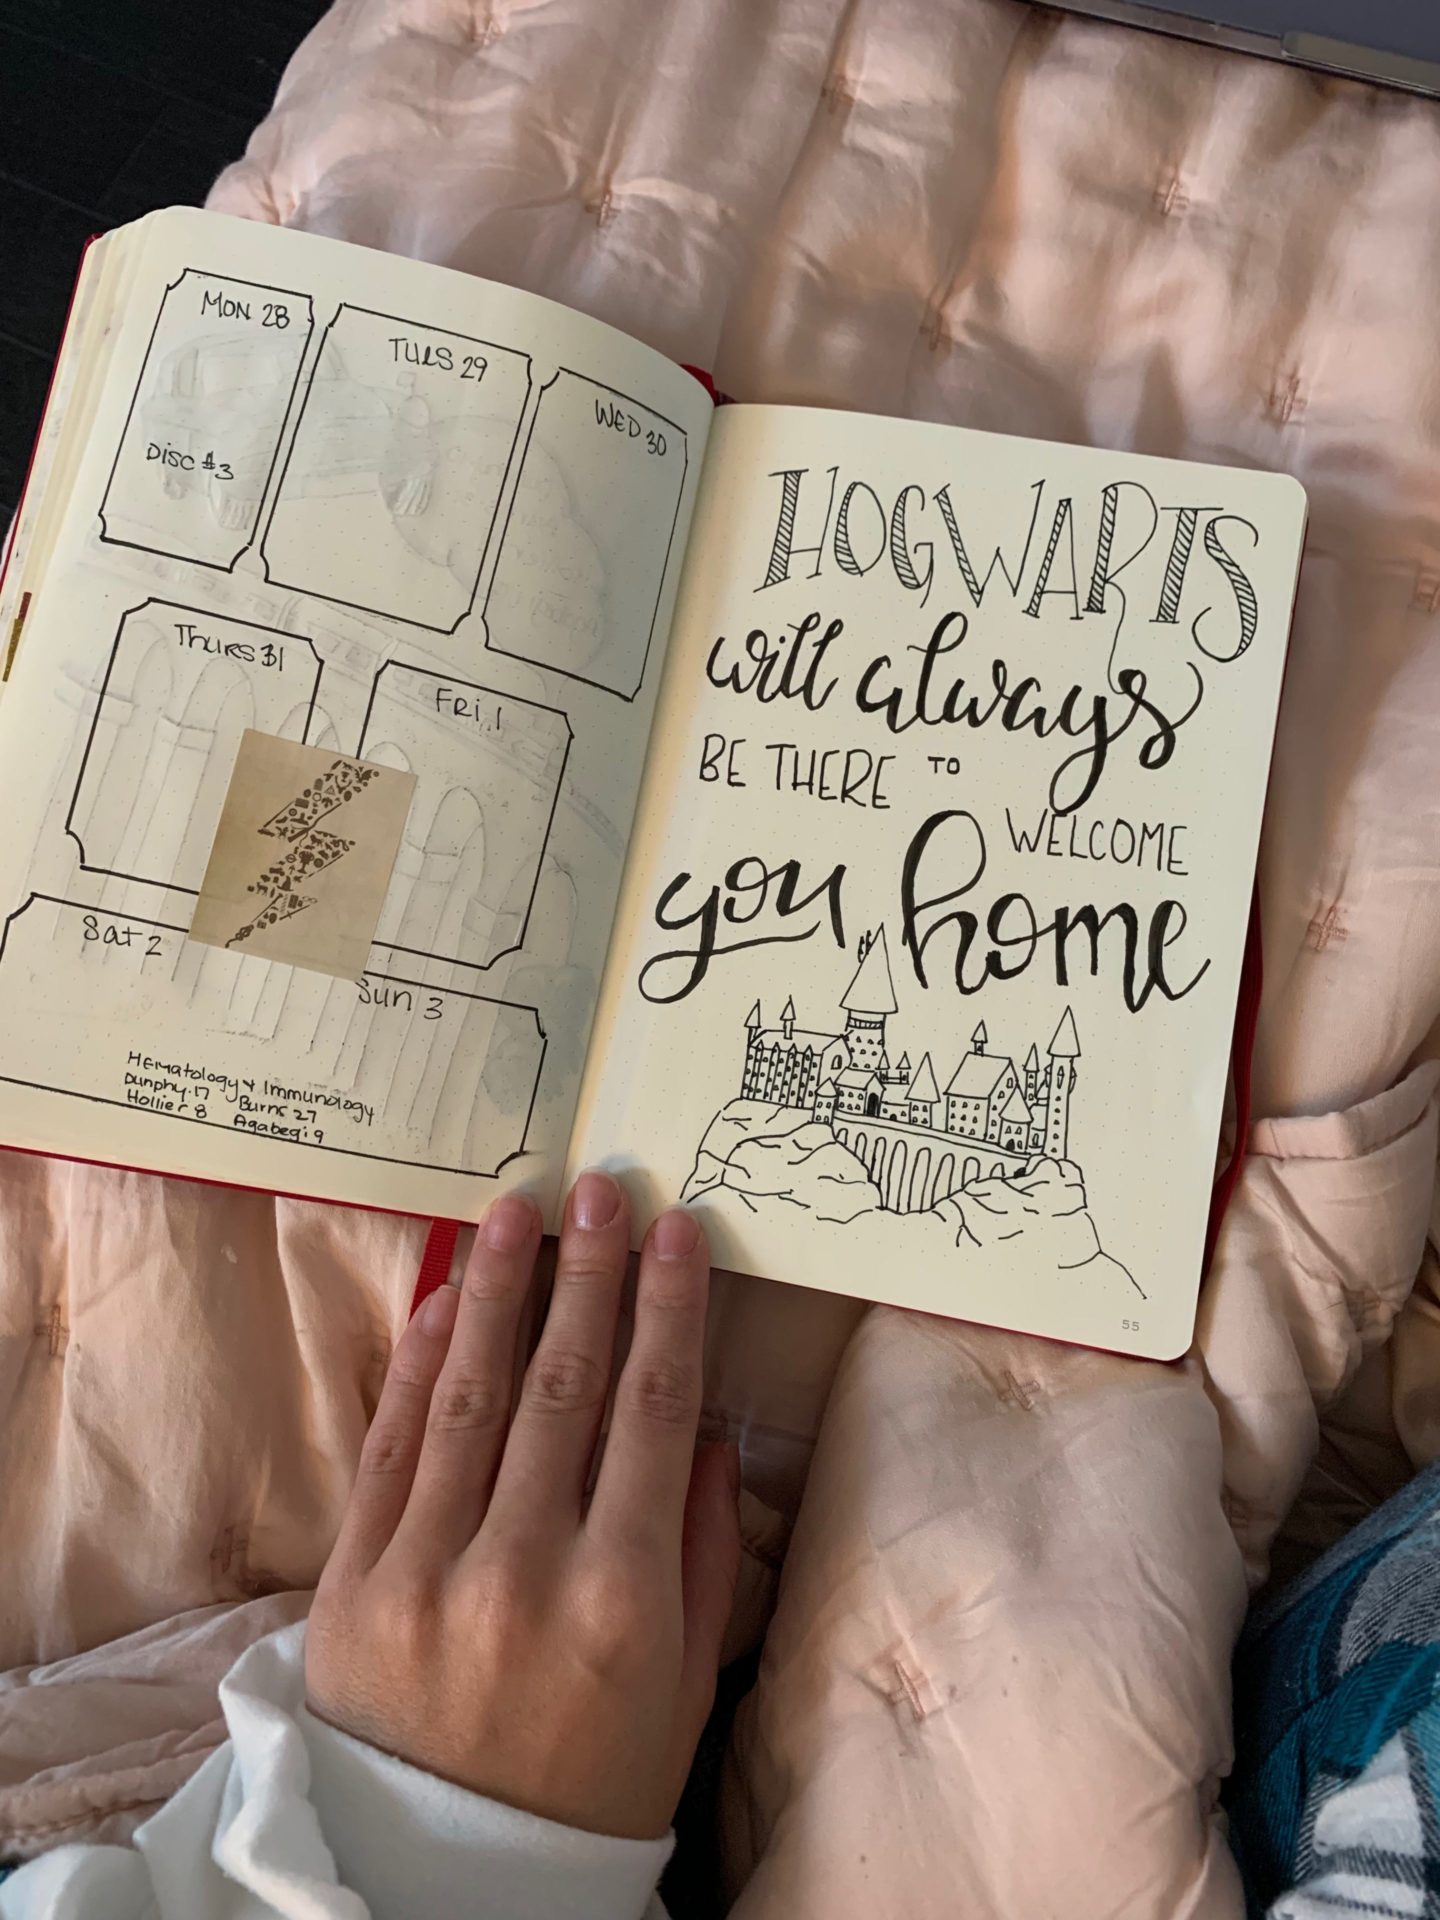 MON 28
DISC #3
TUES 29
WED 30
THURS 31
FRI 1
Sat 2
Sun 3
HEmatology & Immunology
Dunphy · 17 Burns 27
Hollier 8 Agabegi 9
HOGWARTS
will always
BE THERE TO
WELCOME
you home
55